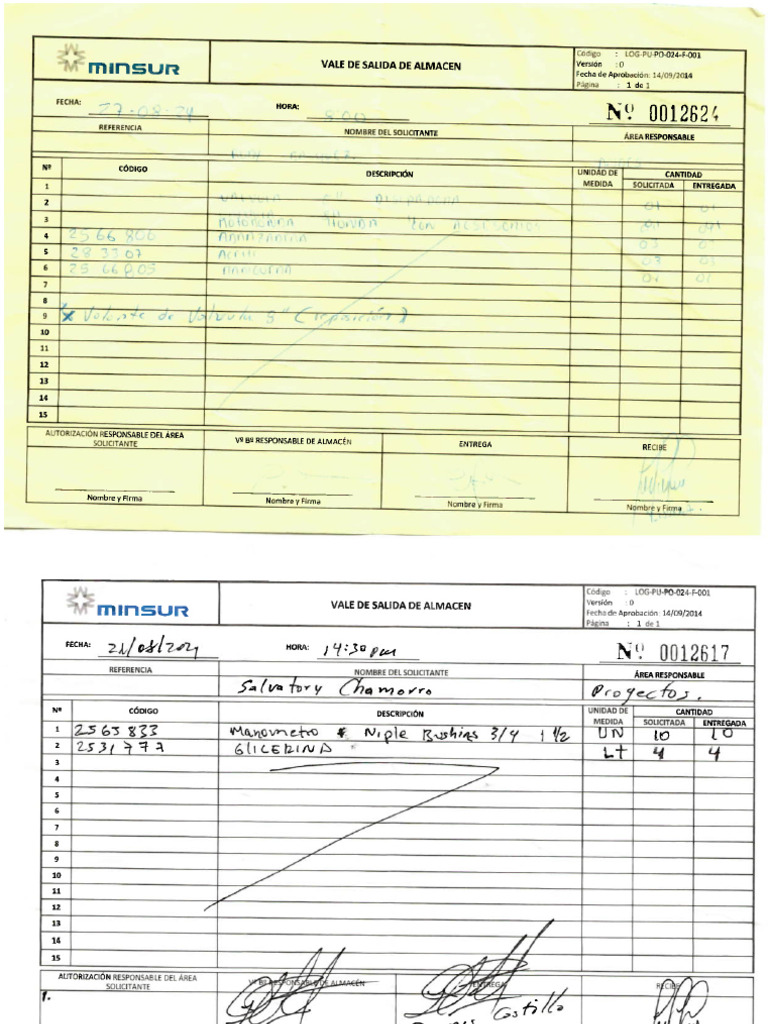 MINSUR
VALE DE SALIDA DE ALMACEN
Código : LOG-PU-PO-024-F-001
Versión : 0
Fecha de Aprobación: 14/09/2014
Página : 1 de 1
FECHA: 27-08-24 HORA: 8:00 Nº 0012624
REFERENCIA NOMBRE DEL SOLICITANTE ÁREA RESPONSABLE
Nº CÓDIGO DESCRIPCIÓN UNIDAD DE MEDIDA CANTIDAD
SOLICITADA ENTREGADA
1
2 01 01
3 MOTOBOMBA HONDA CON ACCESORIOS 01 01
4 2566806 03 03
5 283307 ACEITE 03 03
6 2566805 01 01
7
8
9 * Volante de Valvula 8" (reposición)
10
11
12
13
14
15
AUTORIZACIÓN RESPONSABLE DEL ÁREA SOLICITANTE Vº Bº RESPONSABLE DE ALMACÉN ENTREGA RECIBE
Nombre y Firma Nombre y Firma Nombre y Firma Nombre y Firma
MINSUR
VALE DE SALIDA DE ALMACEN
Código : LOG-PU-PO-024-F-001
Versión : 0
Fecha de Aprobación: 14/09/2014
Página : 1 de 1
FECHA: 21/08/2024 HORA: 14:30 pm Nº 0012617
REFERENCIA NOMBRE DEL SOLICITANTE ÁREA RESPONSABLE
Salvatory Chamorro Proyectos.
Nº CÓDIGO DESCRIPCIÓN UNIDAD DE MEDIDA CANTIDAD
SOLICITADA ENTREGADA
1 2565833 Manometro Niple Bushins 3/4 1 1/2 UN 10 10
2 2531777 GLICERINA LT 4 4
3
4
5
6
7
8
9
10
11
12
13
14
15
AUTORIZACIÓN RESPONSABLE DEL ÁREA SOLICITANTE Vº Bº RESPONSABLE DE ALMACÉN ENTREGA RECIBE
1.
Castillo